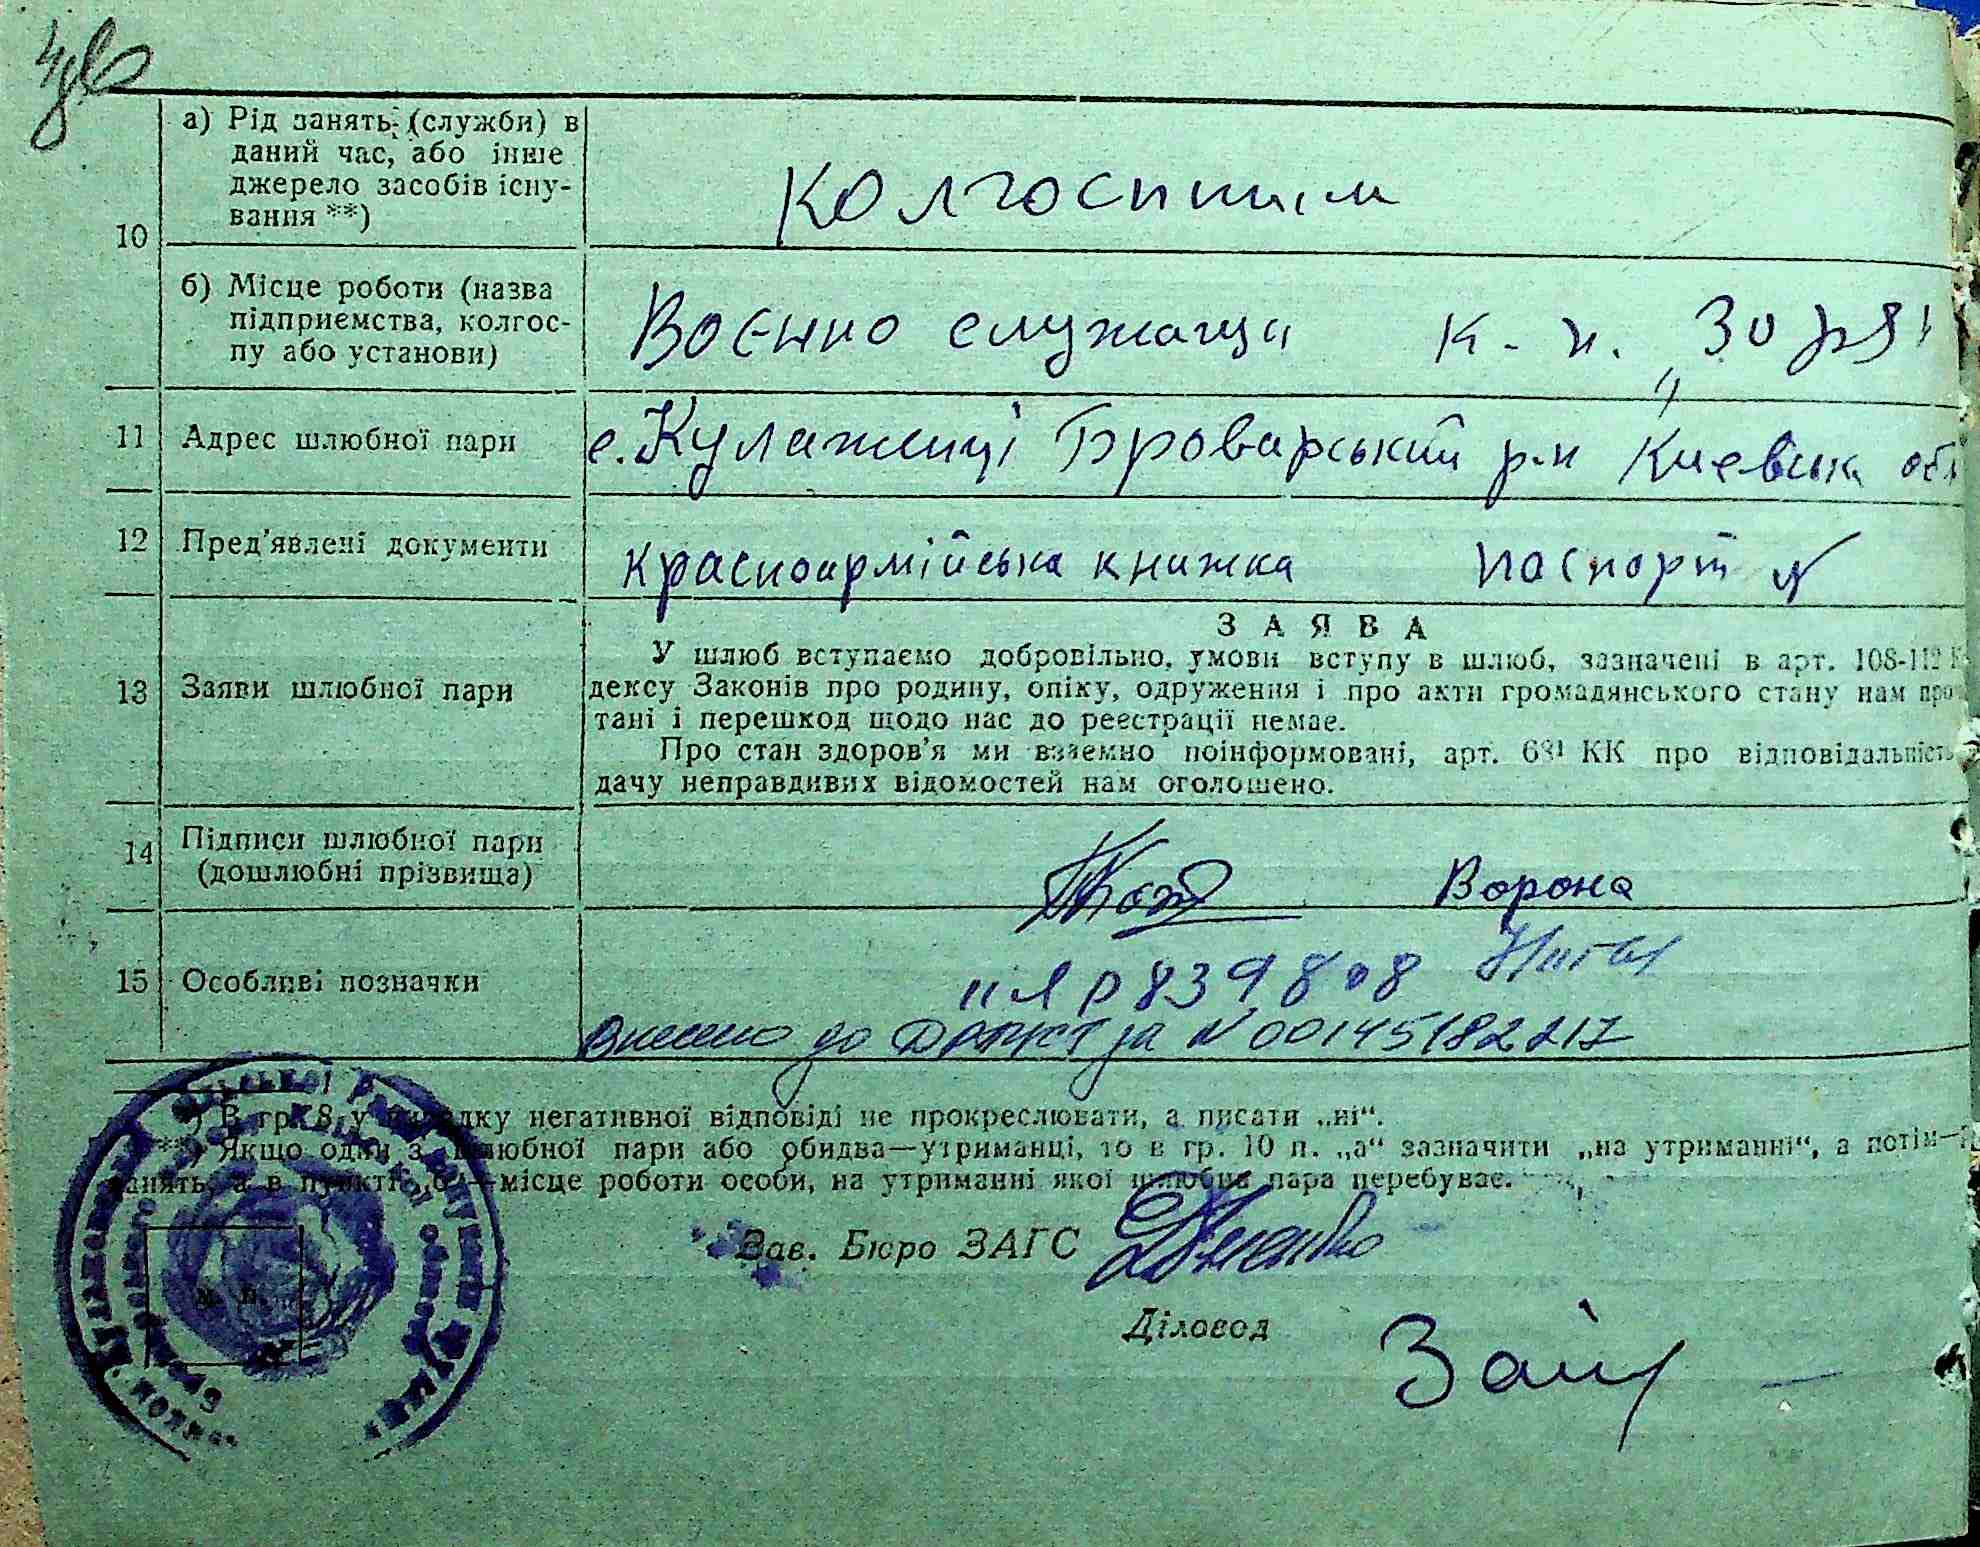 10
а) Рід занять (служби) в
даний час, або інше
джерело засобів існу-
вання **)
колгоспник
б) Місце роботи (назва
підприємства, колгос-
пу або установи)
Воєнно служащи к-п. "Зоря"
11 Адрес шлюбної пари
с. Кулажинці Броварський р-н Киевськ обл
12 Пред'явлені документи
красноармійська книжка паспорт №
13 Заяви шлюбної пари
ЗАЯВА
У шлюб вступаємо добровільно, умови вступу в шлюб, зазначені в арт. 108-112 К
дексу Законів про родину, опіку, одруження і про акти громадянського стану нам про
тані і перешкод щодо нас до реестрації немає.
Про стан здоров'я ми взаємно поінформовані, арт. 68¹ КК про відповідальність
дачу неправдивих відомостей нам оголошено.
14 Підписи шлюбної пари
(дошлюбні прізвища)
Ворона
15 Особливі позначки
II ЯР 839808
Внесено до ДРАЦСГ за № 00145182217
*) В гр. 8 у випадку негативної відповіді не прокреслювати, а писати „ні“.
**) Якщо один з шлюбної пари або обидва—утриманці, то в гр. 10 п. „а“ зазначити „на утриманні“, а потім—
занять, а в пункті „б“—місце роботи особи, на утриманні якої шлюбна пара перебуває.
Зав. Бюро ЗАГС
М. П.
Діловод